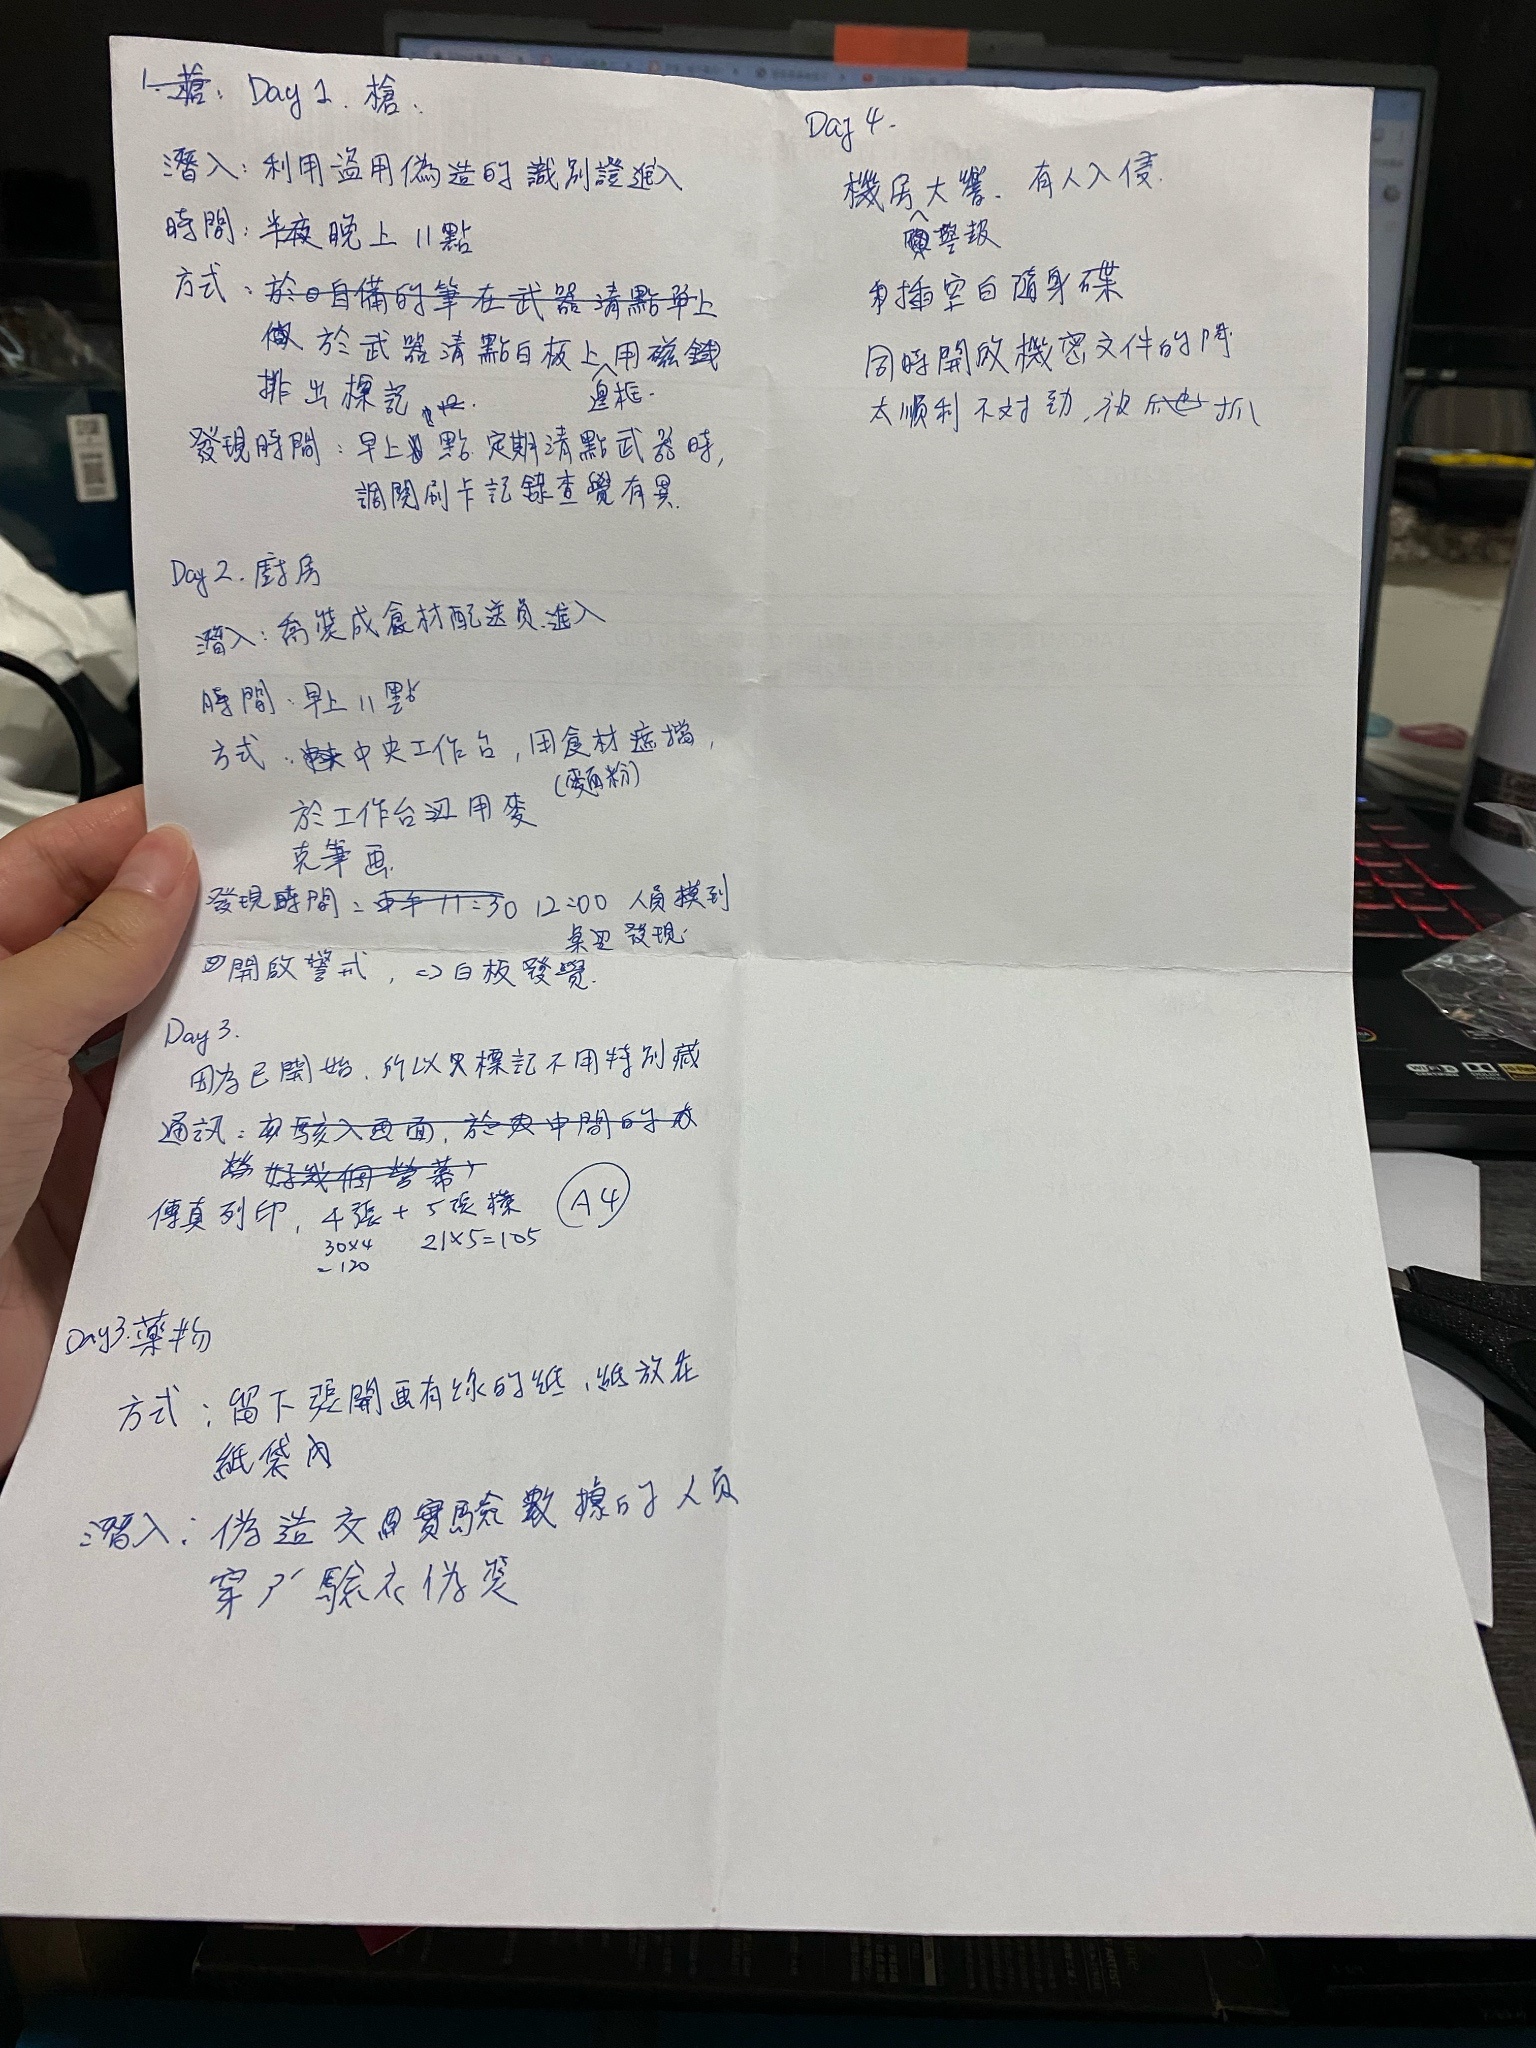 Day 1. 槍:
潛入: 利用盜用偽造的識別證進入
時間: 晚上 11點
方式: 於自備的筆在武器清點單上
於武器清點白板上用磁鐵
邊框.
排出標記
發現時間: 早上 點 定期清點武器時,
調閱刷卡記錄查覺有異.
Day 2. 廚房
潛入: 喬裝成食材配送員進入
時間: 早上 11點
方式: 中央工作台, 用食材遮擋,
(麵粉)
於工作台边用麥
克筆画.
發現時間: 11:30 12:00 人員摸到
桌边發現.
開啟警戒, => 白板發覺.
Day 3.
因為已開始, 所以 標記不用特別藏
通訊: 駭入画面, 於 中間的
好幾個螢幕
傳真列印, 4張 + 5張橫 A4
30×4 21×5=105
=120
Day3.藥物
方式: 留下張開画有线的纸, 紙放在
紙袋內
潛入: 偽造交 實驗數據的人員
穿 驗衣偽裝
Day 4.
機房大響. 有人入侵.
警報
插空白隨身碟
同時開啟機密文件的門
太順利不对勁, 被 抓